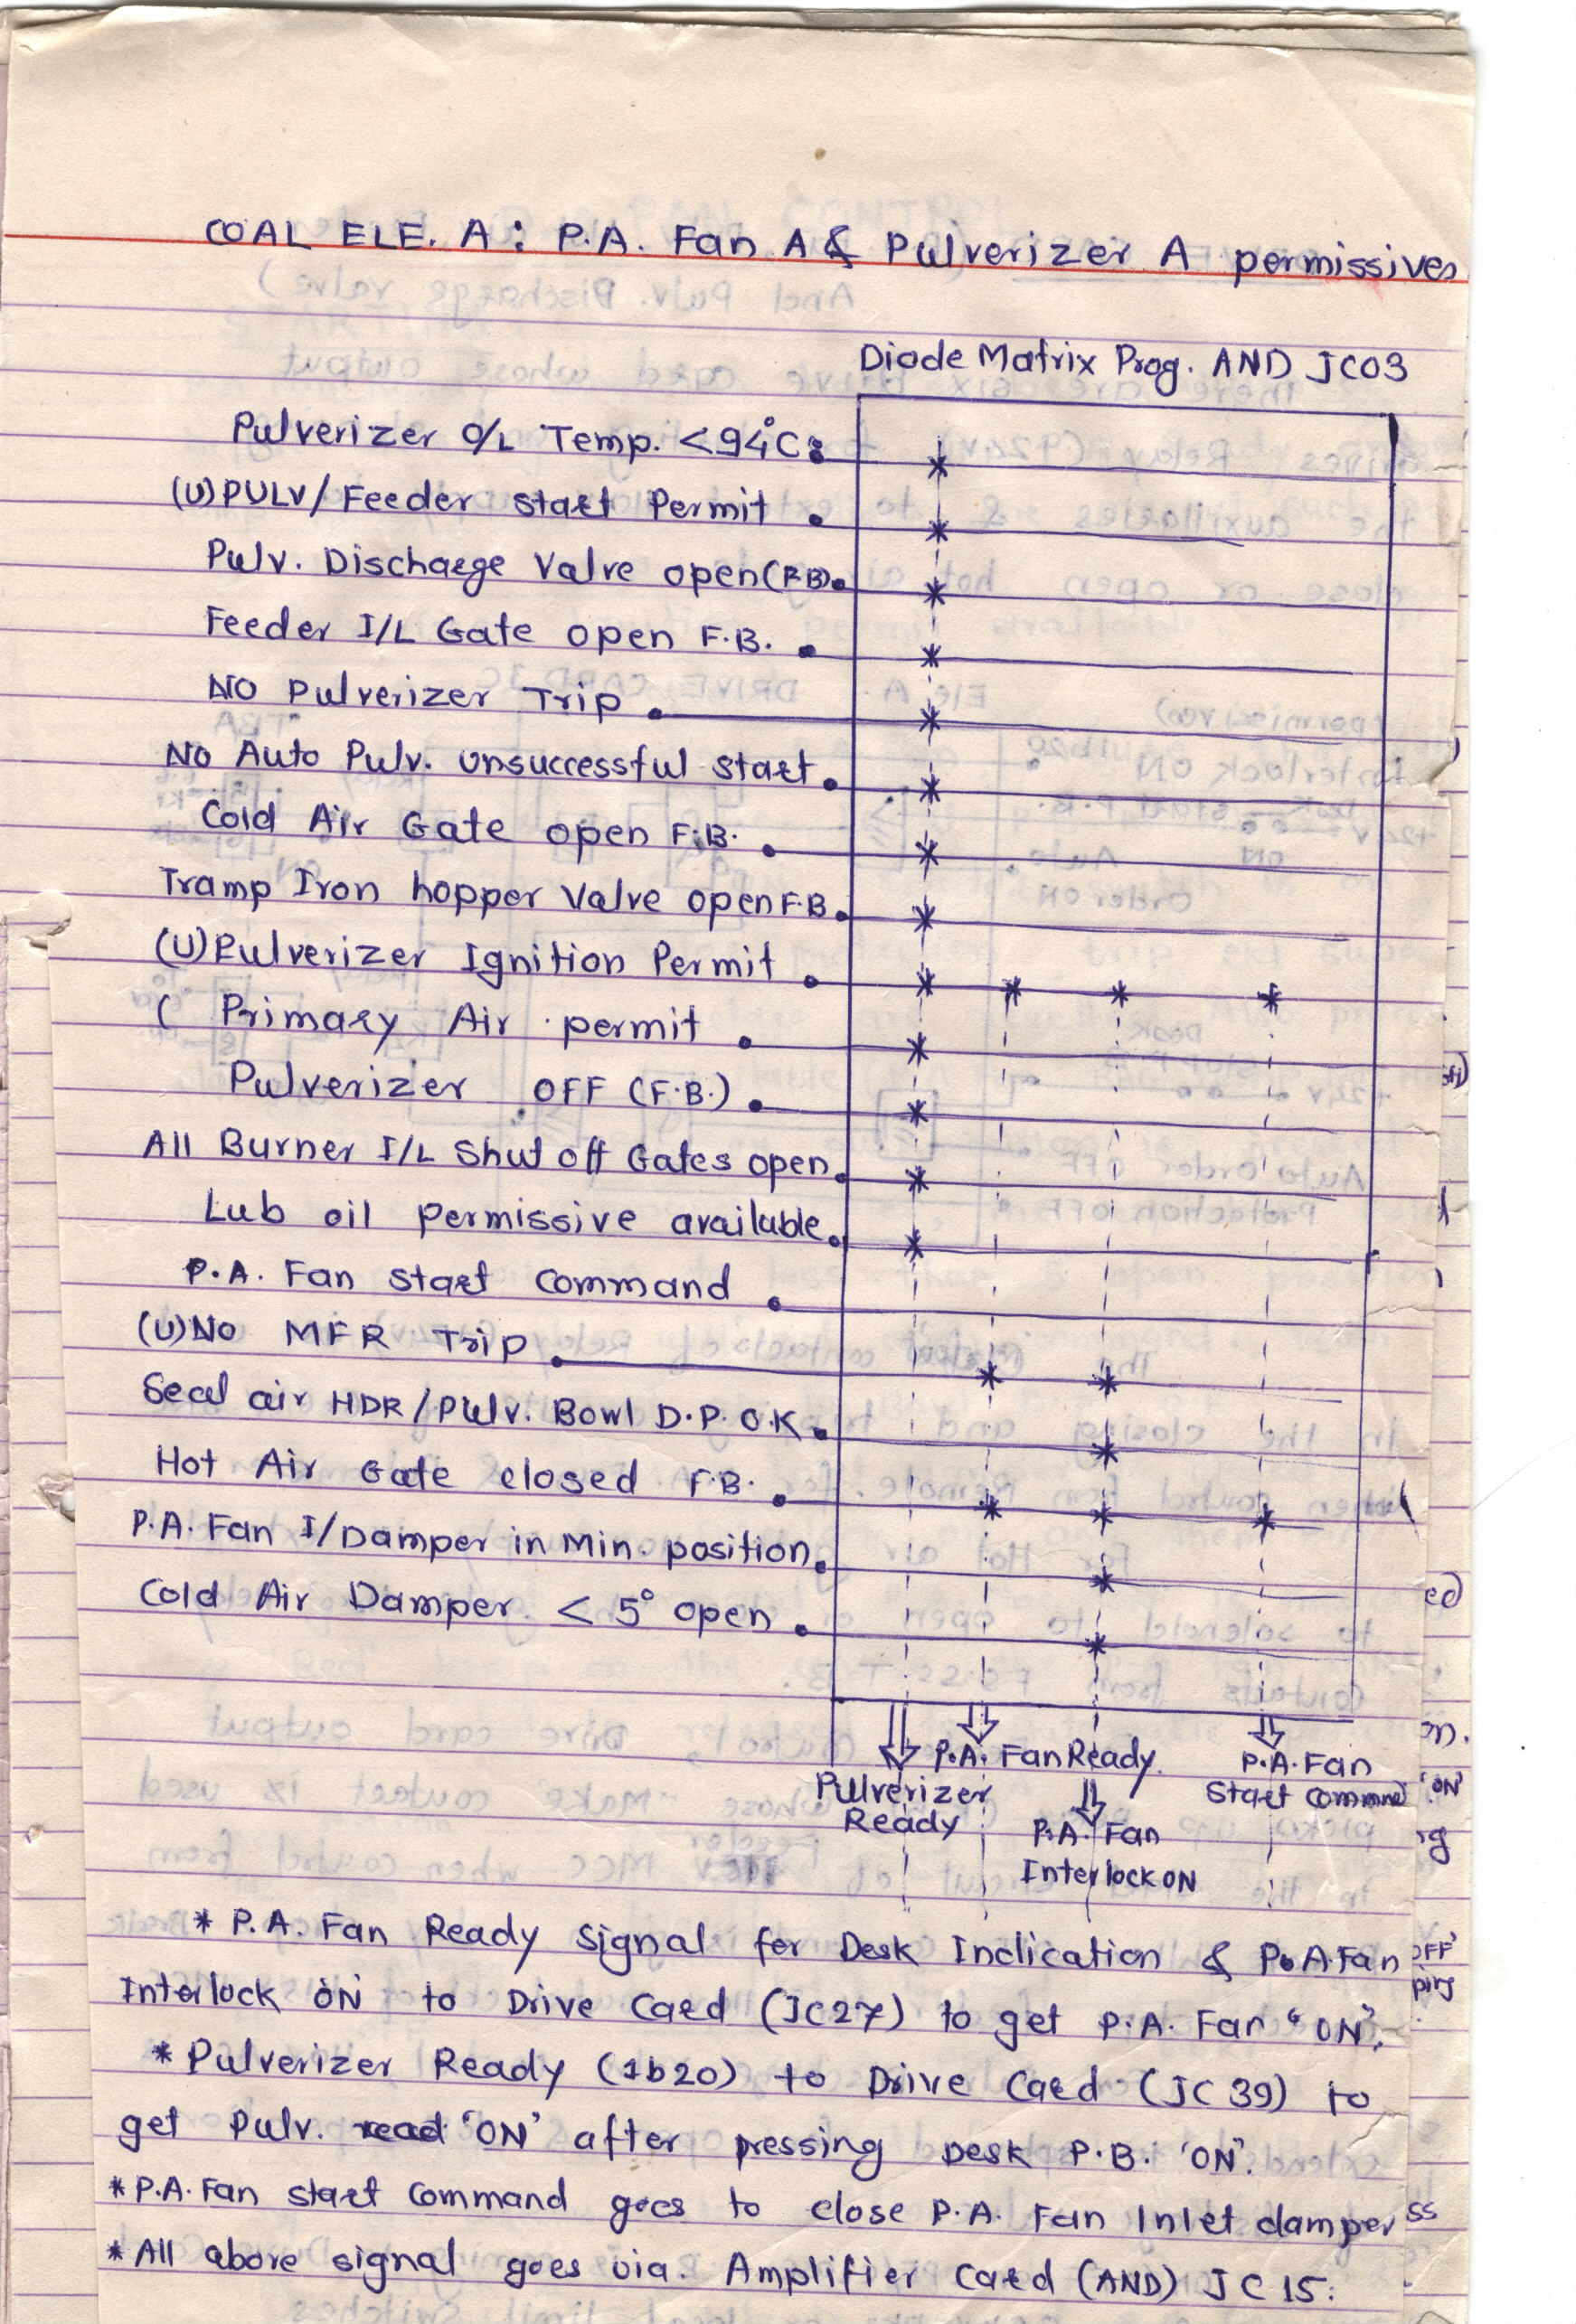 COAL ELE. A: P.A. Fan A & Pulverizer A permissives
Diode Matrix Prog. AND JC03
Pulverizer O/L Temp. <94°C
(U) PULV/Feeder start Permit
Pulv. Discharge Valve open (F.B)
Feeder I/L Gate open F.B.
NO Pulverizer Trip
No Auto Pulv. Unsuccessful start
Cold Air Gate open F.B.
Tramp Iron hopper Valve open F.B
(U) Pulverizer Ignition Permit
( Primary Air permit
Pulverizer OFF (F.B.)
All Burner I/L Shut off Gates open
Lub oil permissive available
P.A. Fan start Command
(U) No MFR Trip
Seal air HDR/Pulv. Bowl D.P. O.K
Hot Air Gate closed F.B.
P.A. Fan I/Damper in Min. position
Cold Air Damper < 5° open
Pulverizer Ready
P.A. Fan Ready
P.A. Fan Interlock ON
P.A. Fan Start Commnd
* P.A. Fan Ready Signal for Desk Indication & P.A. Fan
Interlock ON to Drive Card (JC27) to get P.A. Fan "ON".
* Pulverizer Ready (1b20) to Drive Card (JC 39) to
get Pulv. 'ON' after pressing Desk P.B. 'ON'.
* P.A. Fan start Command goes to close P.A. Fan Inlet damper
* All above signal goes via. Amplifier Card (AND) JC 15.